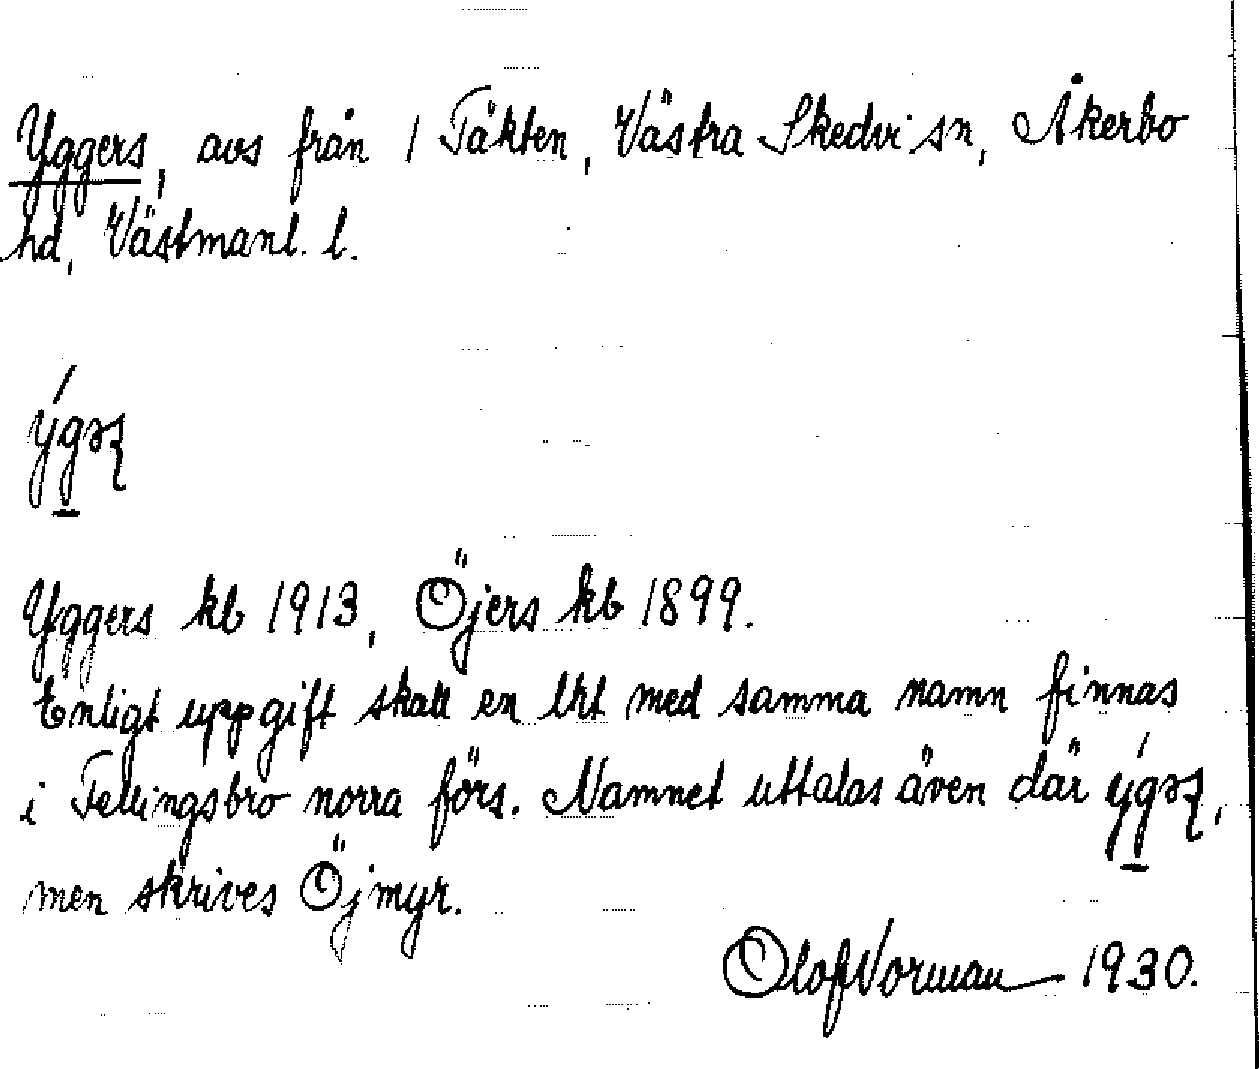 Yggers, avs från 1 Täkten, Västra Skedvi sn, Åkerbo
hd, Västmanl. l.
Yggers kb 1913, Öjers kb 1899.
Enligt uppgift skall en lht med samma namn finnas
i Fellingsbro norra förs. Namnet uttalas även där
men skrives Öjmyr.
Olof Norman 1930.